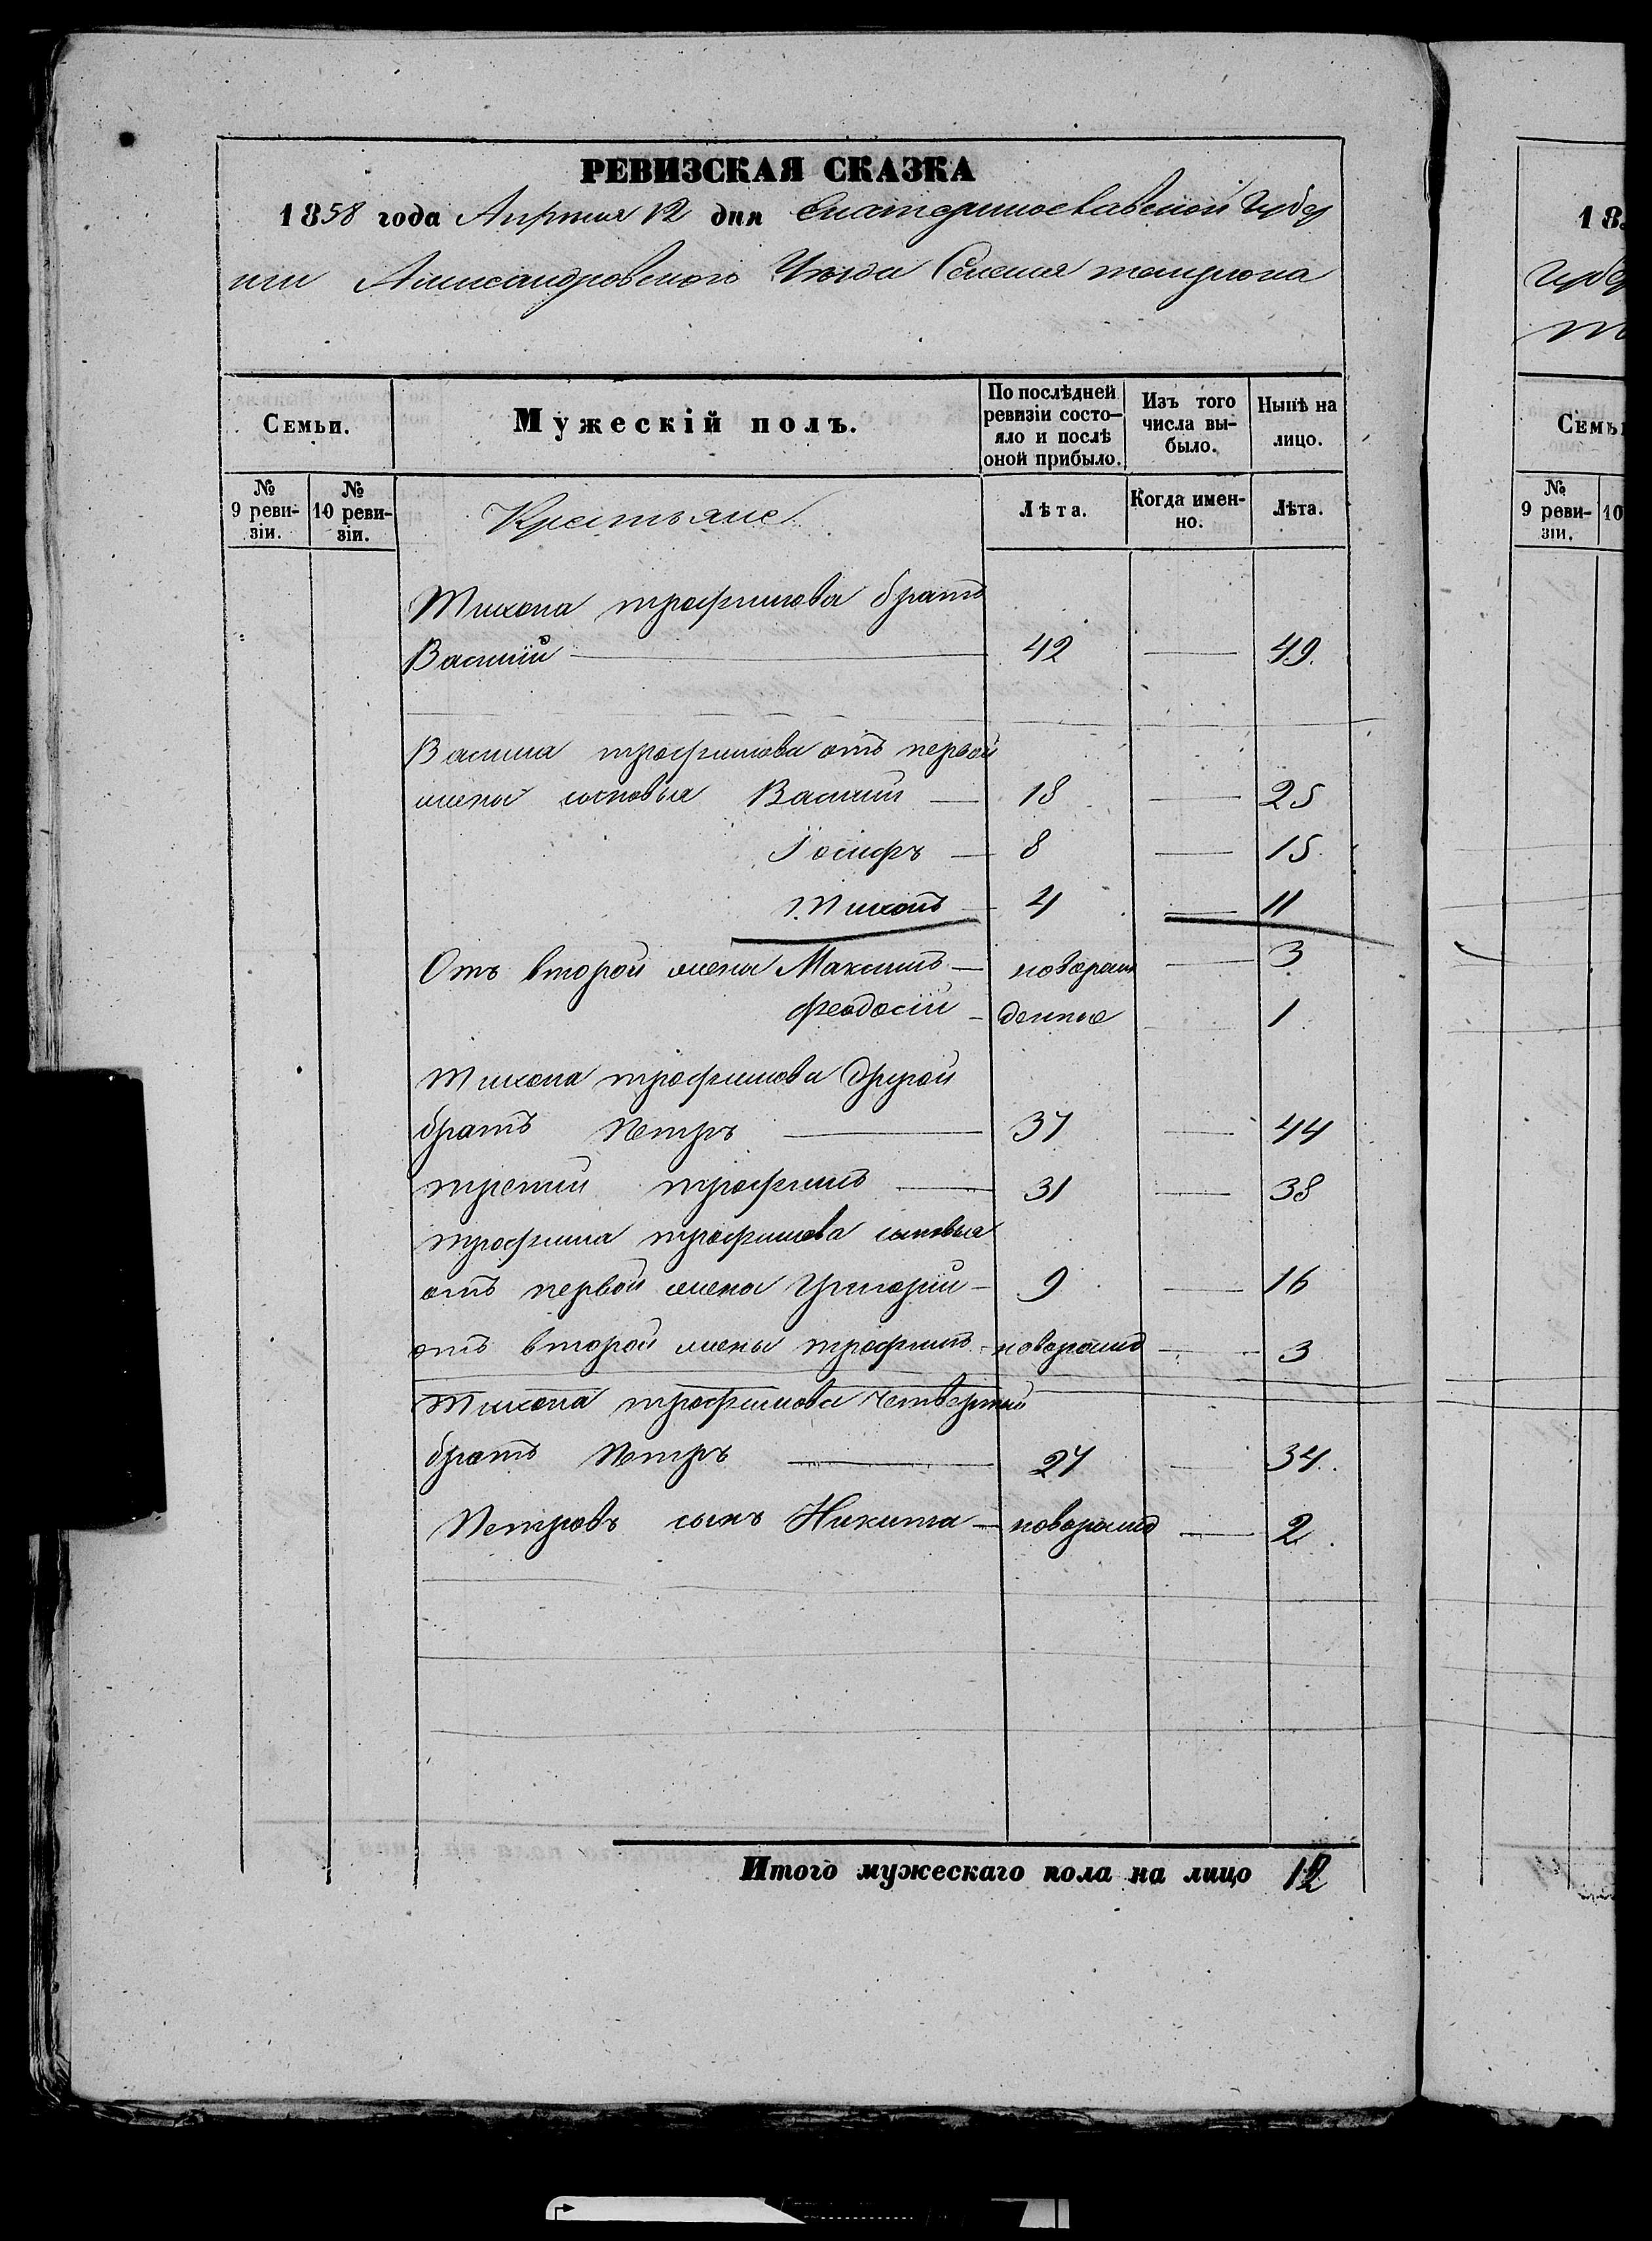 РЕВИЗСКАЯ СКАЗКА
1858 года Апрѣля 12 дня Екатеринославской Губер
ніи Александровского Уѣзда Селенія
Семьи.
Мужескій полъ.
По послѣдней ревизіи состо-
яло и послѣ
оной прибыло.
Изъ того
числа вы-
было.
Нынѣ на
лицо.
№
9 реви-
зіи.
№
10 реви-
зіи.
Крестьяне
Лѣта.
Когда имен-
но.
Лѣта.
Тихона трофимова братъ
Василій 42 49.
Василія трофимова отъ первой
жены сыновья Василий 18 25
Іосифъ 8 15.
Тихонъ 4 11
Отъ второй жены Максимъ новорож 3
феодосій денные 1
Тихона трофимова другой
братъ Петръ 37 44
третий трофимъ 31 38
трофима трофимова сыновья
отъ первой жены Григорій 9 16
отъ второй жены трофимъ новорожд 3
Тихона трофимова четвертый
братъ Петръ 27 34.
Петровъ сынъ Никита новорожд 2
Итого мужескаго пола на лицо 12
18
Губер
Семьи
№
9 реви-
зіи.
10